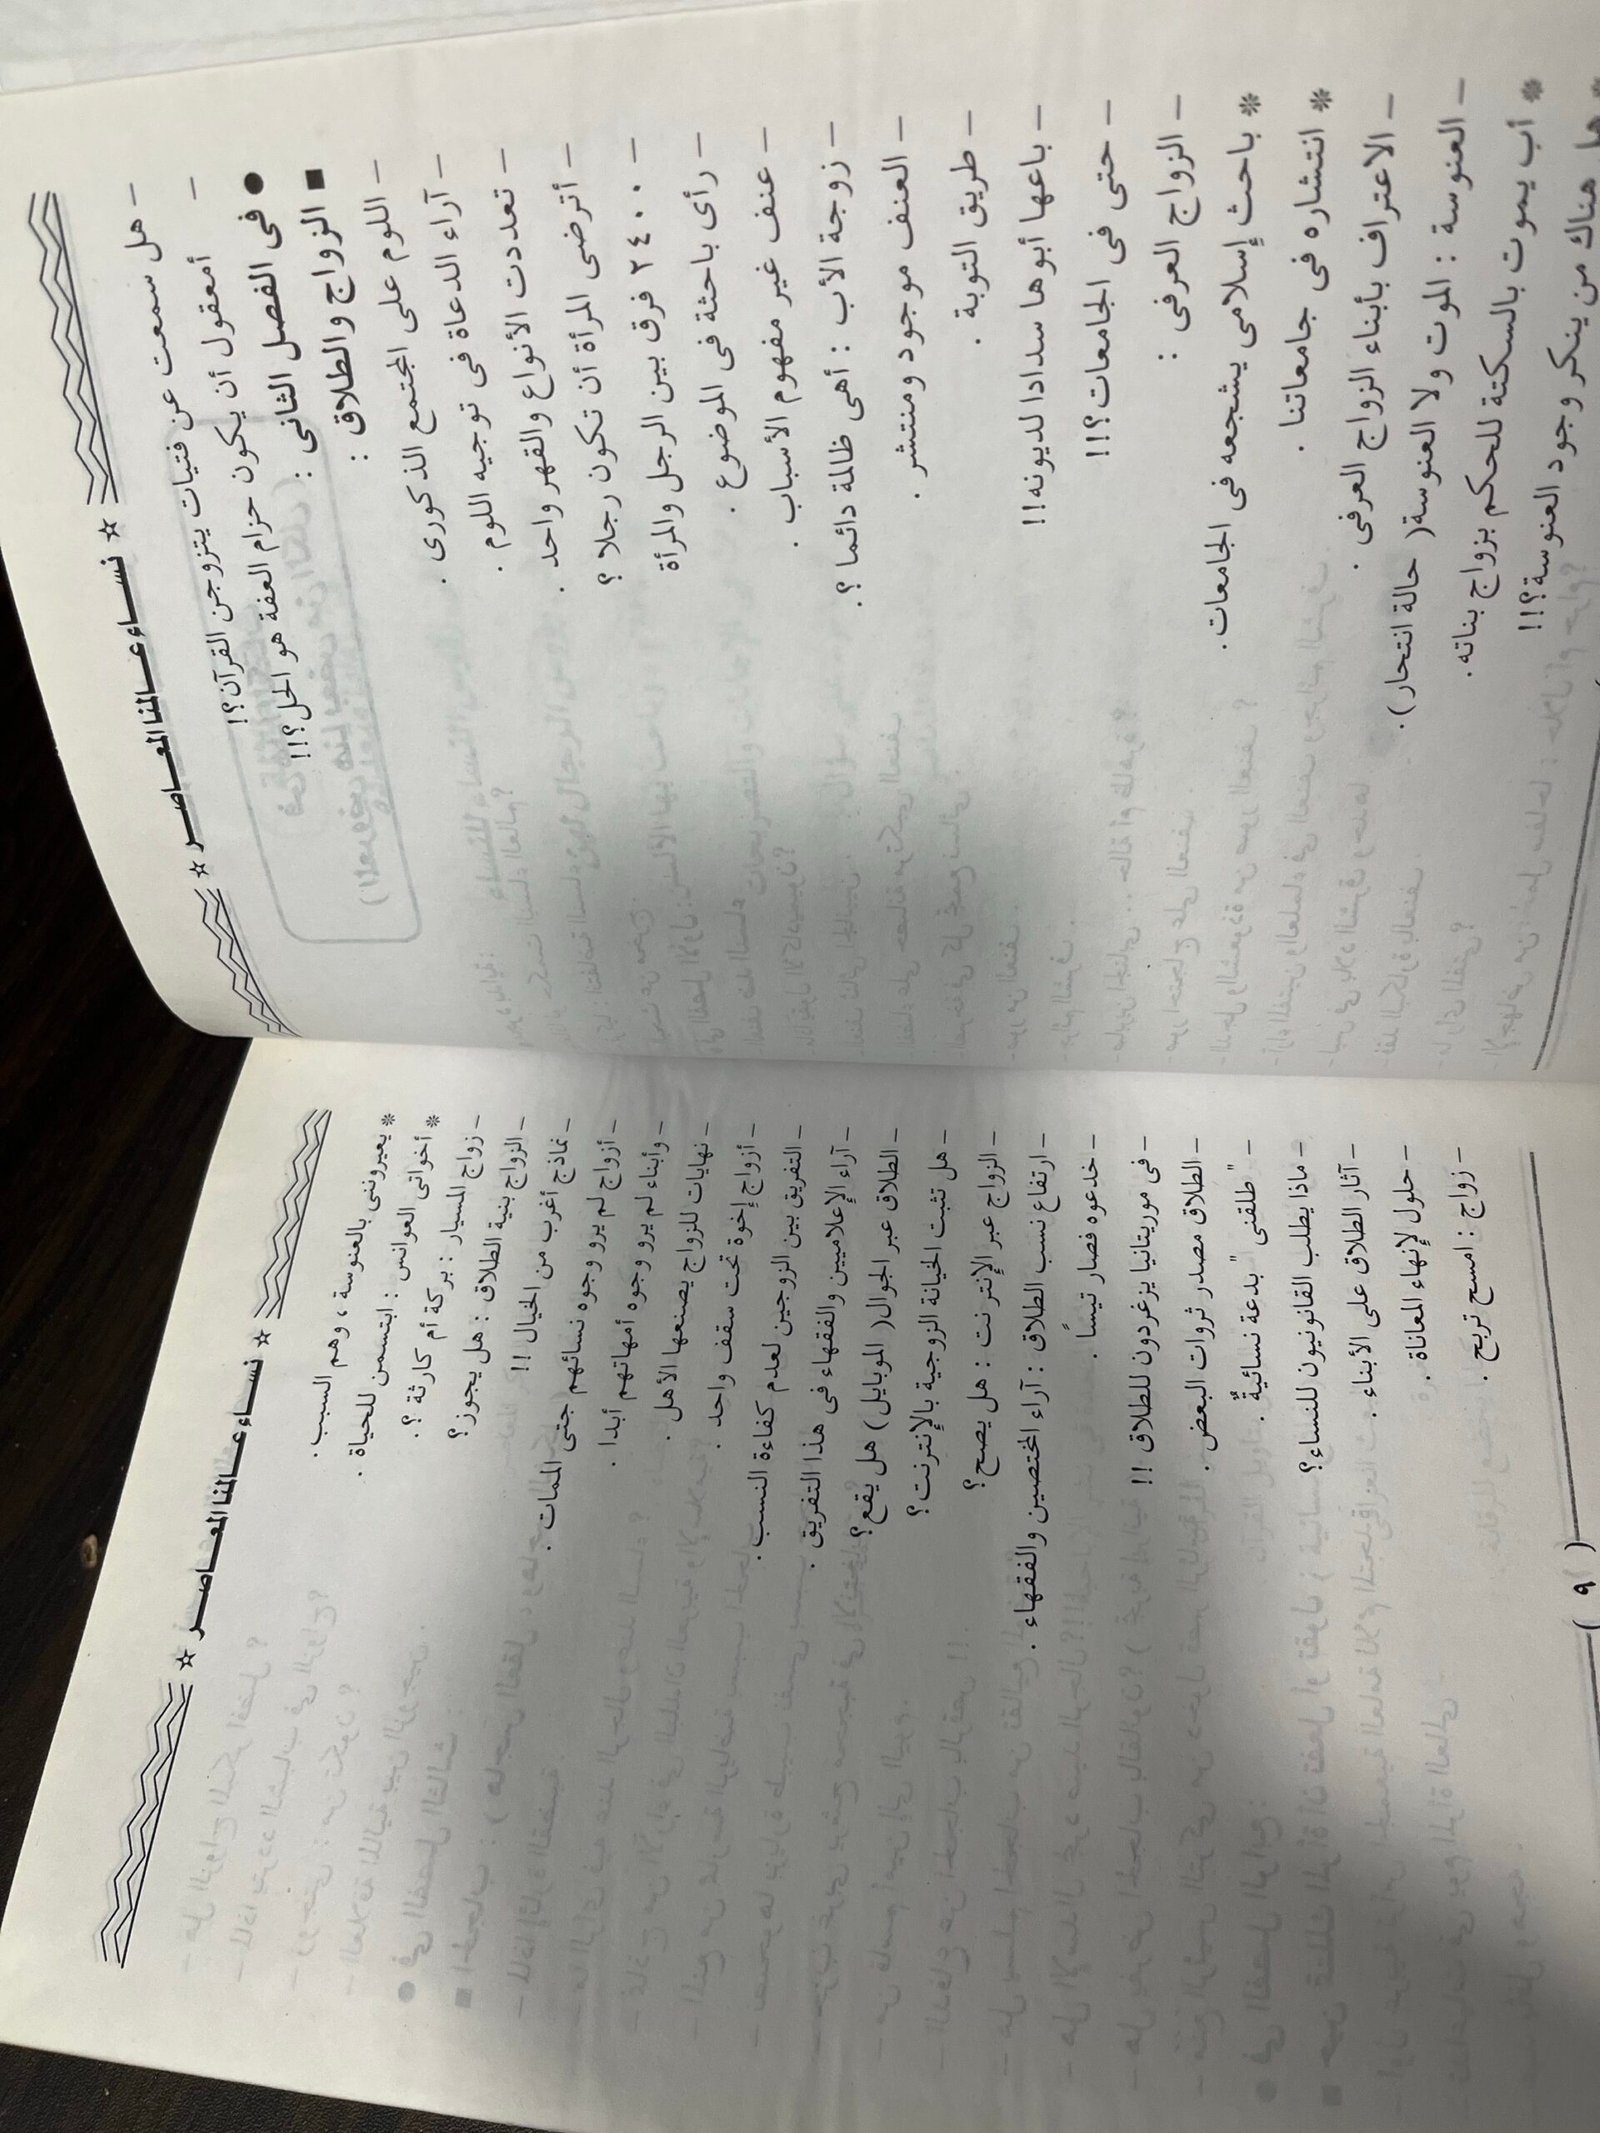 ☆ نساء عالمنا المعاصر ☆
– هل سمعت عن فتيات يتزوجن القرآن؟!
– أمعقول أن يكون حزام العفة هو الحل؟!!
● فى الفصل الثانى :
■ الزواج والطلاق :
– اللوم على المجتمع الذكورى .
– آراء الدعاة فى توجيه اللوم .
– تعددت الأنواع والقهر واحد .
– أترضى المرأة أن تكون رجلا ؟
– ٢٤٠٠ فرق بين الرجل والمرأة
– رأى باحثة فى الموضوع .
– عنف غير مفهوم الأسباب .
– زوجة الأب : أهى ظالمة دائما ؟.
– العنف موجود ومنتشر .
– طريق التوبة .
– باعها أبوها سدادا لديونه!!
– حتى فى الجامعات؟!!
– الزواج العرفى :
* باحث إسلامى يشجعه فى الجامعات.
* انتشاره فى جامعاتنا .
– الاعتراف بأبناء الزواج العرفى .
– العنوسة : الموت ولا العنوسة( حالة انتحار ).
* أب يموت بالسكتة للحكم بزواج بناته.
* هل هناك من ينكر وجود العنوسة؟!!
☆ نساء عالمنا المعاصر ☆
* يعيروننى بالعنوسة ، وهم السبب .
* أخواتى العوانس : ابتسمن للحياة .
– زواج المسيار : بركة أم كارثة ؟.
– الزواج بنية الطلاق : هل يجوز؟
– نماذج أغرب من الخيال !!
– أزواج لم يرو وجوه نسائهم جتى الممات .
– وأبناء لم يرو وجوه أمهاتهم أبدا .
– نهايات للزواج يصنعها الأهل .
– أزواج إخوة تحت سقف واحد .
– التفريق بين الزوجين لعدم كفاءة النسب .
– آراء الإعلاميين والفقهاء فى هذا التفريق .
– الطلاق عبر الجوال( الموبايل) هل يقع؟
– هل تثبت الخيانة الزوجية بالإنترنت؟
– الزواج عبر الإنترنت : هل يصح؟
– ارتفاع نسب الطلاق : آراء المختصين والفقهاء .
– خدعوه فصار تيسًا .
– فى موريتانيا يزغردون للطلاق !!
– الطلاق مصدر ثروات البعض .
– "طلقنى "بدعة نسائيةٌ .
– ماذا يطلب القانونيون للنساء؟
– آثار الطلاق على الأبناء .
– حلول لإنهاء المعاناة .
– زواج : امسح تربح .
( ٩ )